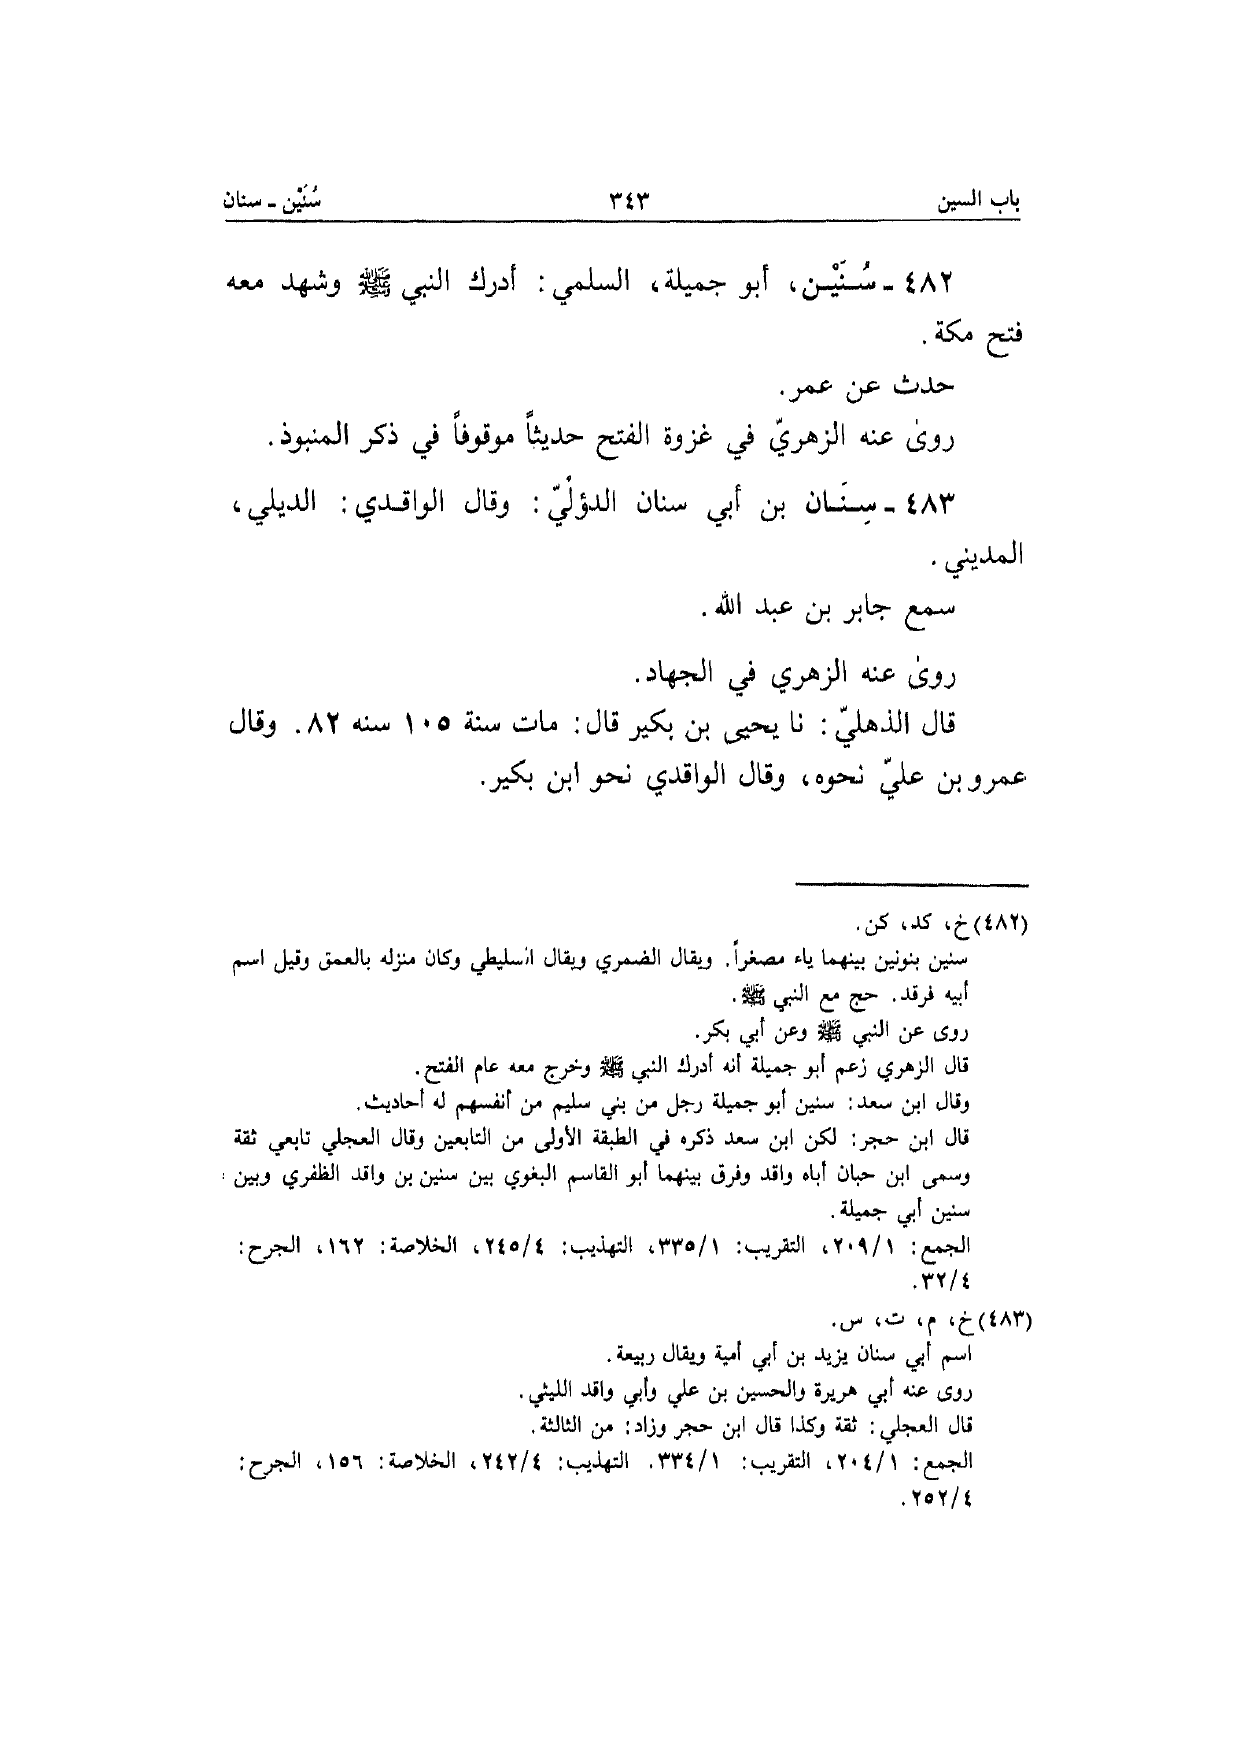 باب السين ٣٤٣ سُنَيْن ـ سنان
٤٨٢ ـ سُنَيْن، أبو جميلة، السلمي: أدرك النبي ﷺ وشهد معه
فتح مكة.
حدث عن عمر.
روىٰ عنه الزهريّ في غزوة الفتح حديثاً موقوفاً في ذكر المنبوذ.
٤٨٣ ـ سِنَان بن أبي سنان الدؤلْيّ: وقال الواقدي: الديلي،
المديني.
سمع جابر بن عبد الله.
روىٰ عنه الزهري في الجهاد.
قال الذهليّ: نا يحيى بن بكير قال: مات سنة ١٠٥ سنه ٨٢. وقال
عمرو بن عليّ نحوه، وقال الواقدي نحو ابن بكير.
(٤٨٢) خ، كد، كن.
سنين بنونين بينهما ياء مصغراً. ويقال الضمري ويقال السليطي وكان منزله بالعمق وقيل اسم
أبيه فرقد. حج مع النبي ﷺ.
روى عن النبي ﷺ وعن أبي بكر.
قال الزهري زعم أبو جميلة أنه أدرك النبي ﷺ وخرج معه عام الفتح.
وقال ابن سعد: سنين أبو جميلة رجل من بني سليم من أنفسهم له أحاديث.
قال ابن حجر: لكن ابن سعد ذكره في الطبقة الأولى من التابعين وقال العجلي تابعي ثقة
وسمى ابن حبان أباه واقد وفرق بينهما أبو القاسم البغوي بين سنين بن واقد الظفري وبين
سنين أبي جميلة.
الجمع: ٢٠٩/١، التقريب: ٣٣٥/١، التهذيب: ٢٤٥/٤، الخلاصة: ١٦٢، الجرح:
٣٢/٤.
(٤٨٣) خ، م، ت، س.
اسم أبي سنان يزيد بن أبي أمية ويقال ربيعة.
روى عنه أبي هريرة والحسين بن علي وأبي واقد الليثي.
قال العجلي: ثقة وكذا قال ابن حجر وزاد: من الثالثة.
الجمع: ٢٠٤/١، التقريب: ٣٣٤/١. التهذيب: ٢٤٢/٤، الخلاصة: ١٥٦، الجرح:
٢٥٢/٤.